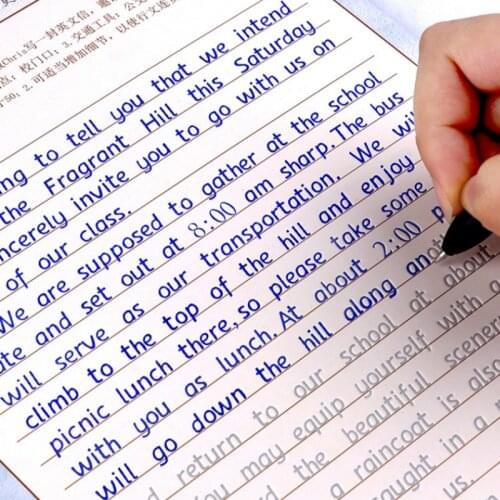 Chris写一封英文信，邀
点，校门口；3.交通工具：公交
50；2.可适当增加细节，以使行文连贯
ng to tell you that we intend
the Fragrant Hill this Saturday
ncerely invite you to go with us on
of our class.
We are supposed to gather at the school
te and set out at 8:00 am sharp. The bus
will serve as our transportation. We wil
climb to the top of the hill and enjoy
picnic lunch there, so please take some
with you as lunch. At about 2:00 p
will go down the hill along another
d return to our school at about
You may equip yourself with a
d the beautiful scene
a raincoat is also
aught in a
us.